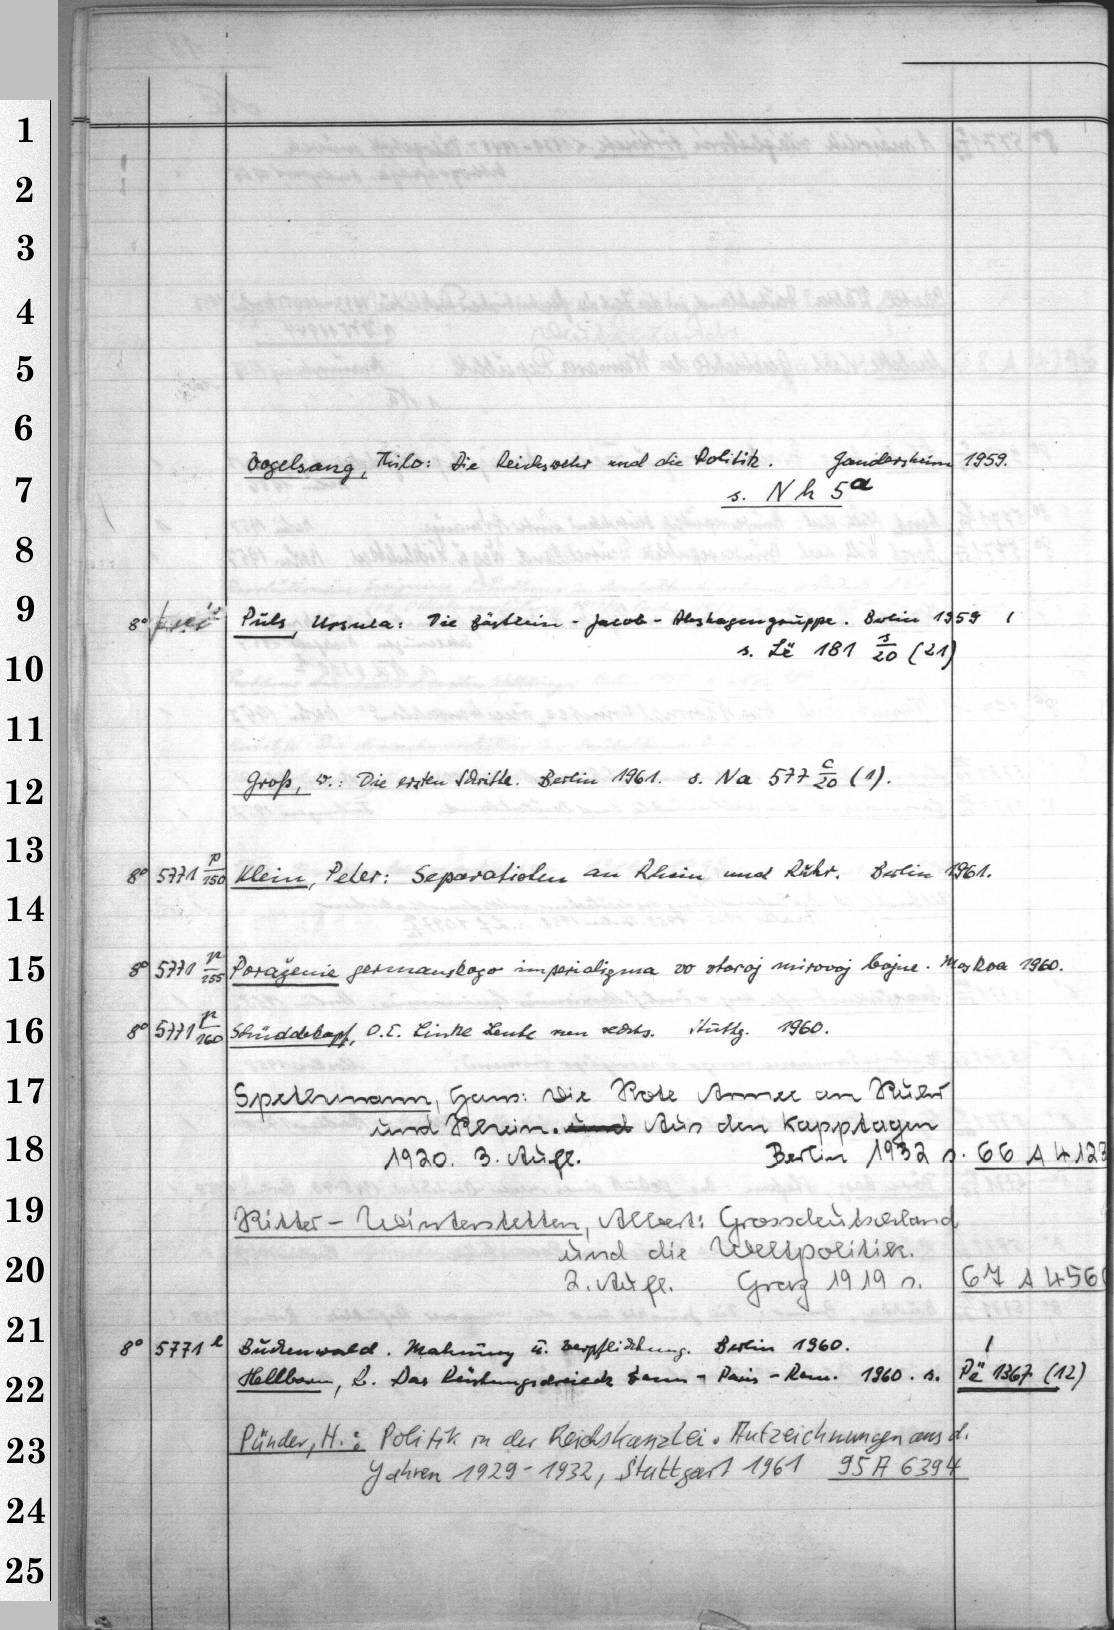 1
2
3
4
5
6
Vogelsang, Thilo: Die Reichswehr und die Politik. Gandersheim 1959.
7
s. Nh 5a
8
9
8° Puls, Ursula: Die Bästlein-Jacob-Abshagengruppe. Berlin 1959 1
s. Lë 181 s/20 (21)
10
11
12
Groß, W.: Die ersten Schritte. Berlin 1961. s. Na 577 c/20 (1).
13
8° 5771 p/150 Klein, Peter: Separatisten an Rhein und Ruhr. Berlin 1961.
14
15
8° 5771 p/155 Poraženie germanskogo imperializma vo vtoroj mirovoj bojne. Moskva 1960.
16
8° 5771 p/160 Schüddekopf, O.E. Linke Leute von rechts. Stuttg. 1960.
17
Spethmann, Hans: Die Rote Armee an Ruhr
und Rhein. und Aus den Kapptagen
18
1920. 3. Aufl. Berlin 1932 s. 66 A 4123
19
Ritter-Winterstetten, Albert: Grossdeutschland
und die Weltpolitik.
20
2. Aufl. Graz 1919 s. 67 A 4560
21
8° 5771 l Buchenwald. Mahnung u. Verpflichtung. Berlin 1960. 1
22
Hellborn, R. Das Rüstungsdreieck Bonn-Paris-Rom. 1960. s. Pë 1367 (12)
23
Pünder, H.: Politik in der Reichskanzlei. Aufzeichnungen aus d.
Jahren 1929-1932, Stuttgart 1961 95 A 6394
24
25